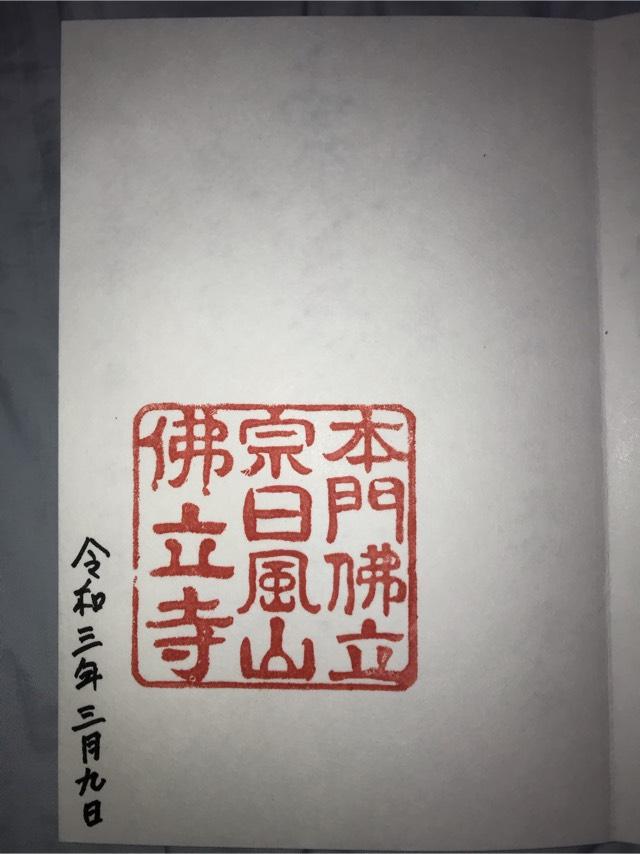 本門佛立
宗日風山
佛立寺
令和三年三月九日